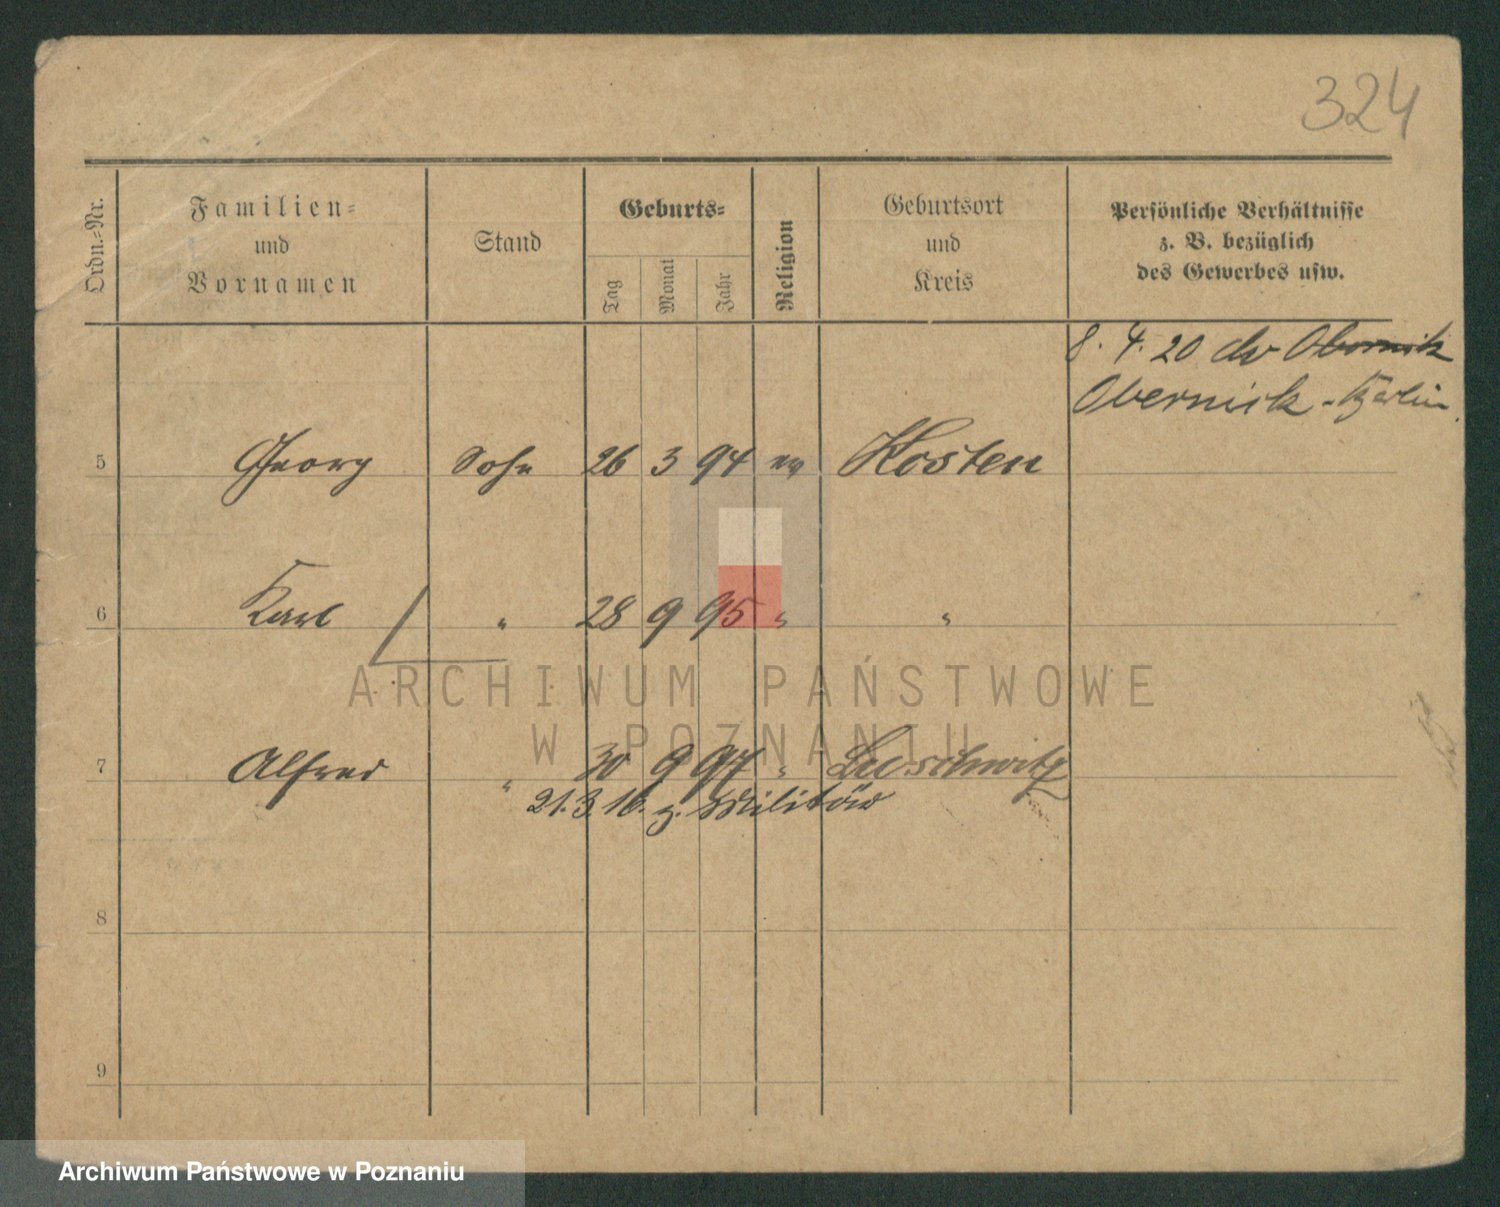 324
Ordn.-Nr.
Familien-
und
Vornamen
Stand
Geburts-
Tag
Monat
Jahr
Religion
Geburtsort
und
Kreis
Persönliche Verhältnisse
z. B. bezüglich
des Gewerbes usw.
8. 4. 20 Obornik
Obernick - Berlin
5 Georg Sohn 26 3 94 ev Kosten
6 Karl " 28 9 95 " "
7 Alfred " 30 9 97 "
21.3.16. z. Militär
8
9
ARCHIWUM PAŃSTWOWE
W POZNANIU
Archiwum Państwowe w Poznaniu